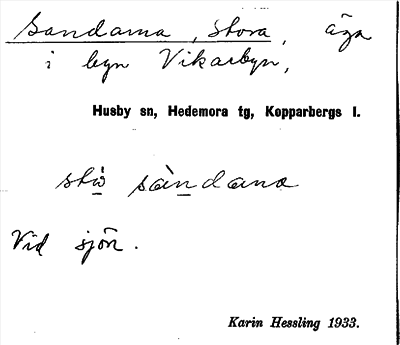 Sandarna, Stora, äga
i byn Vikarbyn,
Husby sn, Hedemora tg, Kopparbergs l.
stö̀ sàndana
Vid sjön.
Karin Hessling 1933.